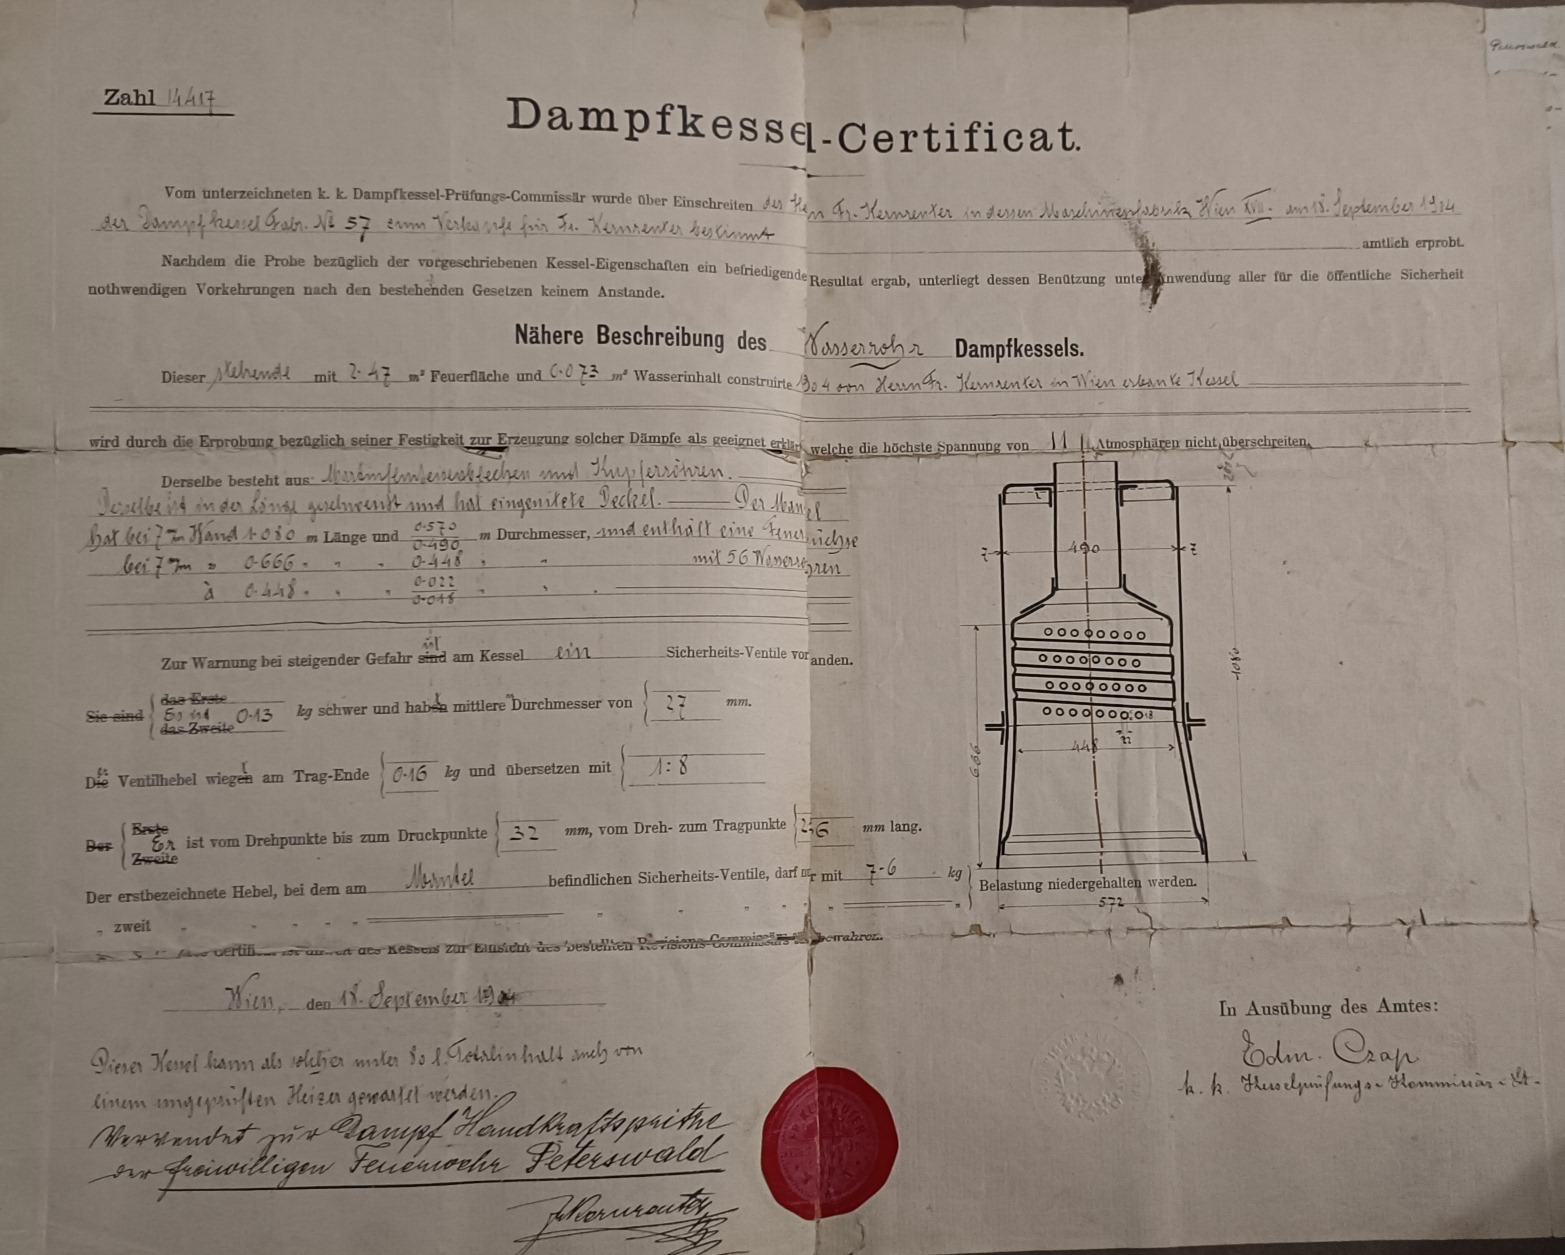 Peterswald
Zahl 14417
Dampfkessel-Certificat.
Vom unterzeichneten k. k. Dampfkessel-Prüfungs-Commissär wurde über Einschreiten des Herrn Fr. Kernreuter in dessen Maschinenfabrik Wien XVII. am 18. September 1904
der Dampfkessel Fabr. № 57 zum Verkaufe für Fr. Kernreuter bestimmt amtlich erprobt.
Nachdem die Probe bezüglich der vorgeschriebenen Kessel-Eigenschaften ein befriedigendes Resultat ergab, unterliegt dessen Benützung unter Anwendung aller für die öffentliche Sicherheit
nothwendigen Vorkehrungen nach den bestehenden Gesetzen keinem Anstande.
Nähere Beschreibung des Wasserrohr Dampfkessels.
Dieser stehende mit 2·47 m² Feuerfläche und 0·073 m³ Wasserinhalt construirte 1904 von Herrn Fr. Kernreuter in Wien erbaute Kessel
wird durch die Erprobung bezüglich seiner Festigkeit zur Erzeugung solcher Dämpfe als geeignet erklärt, welche die höchste Spannung von 11 Atmosphären nicht überschreiten.
Derselbe besteht aus: Martinfeuerblechen und Kupferröhren.
Derselbe ist in der Länge geschweisst und hat eingenietete Deckel. Der Mantel
hat bei 7 mm Wand 1·080 m Länge und 0·570 0·490 m Durchmesser, und enthält eine Feuerbüchse
bei 7 mm " 0·666 " " " 0·448 " " mit 56 Wasserröhren
à 0·448 " " " 0·022 0·018 " " "
Zur Warnung bei steigender Gefahr sind ist am Kessel ein Sicherheits-Ventile vorhanden.
Sie sind das Erste Es ist 0·13 das Zweite kg schwer und haben mittlere Durchmesser von 27 mm.
Die Ventilhebel wiegen am Trag-Ende 0·16 kg und übersetzen mit 1:8
Der Erste Er Zweite ist vom Drehpunkte bis zum Druckpunkte 32 mm, vom Dreh- zum Tragpunkte 256 mm lang.
Der erstbezeichnete Hebel, bei dem am Mantel befindlichen Sicherheits-Ventile, darf nur mit 7·6 kg Belastung niedergehalten werden.
" zweit " " " " " " " "
des Kessels zur Einsicht des bestellten Revisions-Commissärs zu bewahren.
490
7
7
1080
666
448
22
18
572
Wien, den 18. September 1904
In Ausübung des Amtes:
Edm. Czap
k. k. Kesselprüfungs-Kommissär-St.
Dieser Kessel kann als solcher unter 80 l. Totalinhalt auch von
einem ungeprüften Heizer gewartet werden.
Verwendet zur Dampf Handkraftspritze
der freiwilligen Feuerwehr Peterswald
Fr Kernreuter